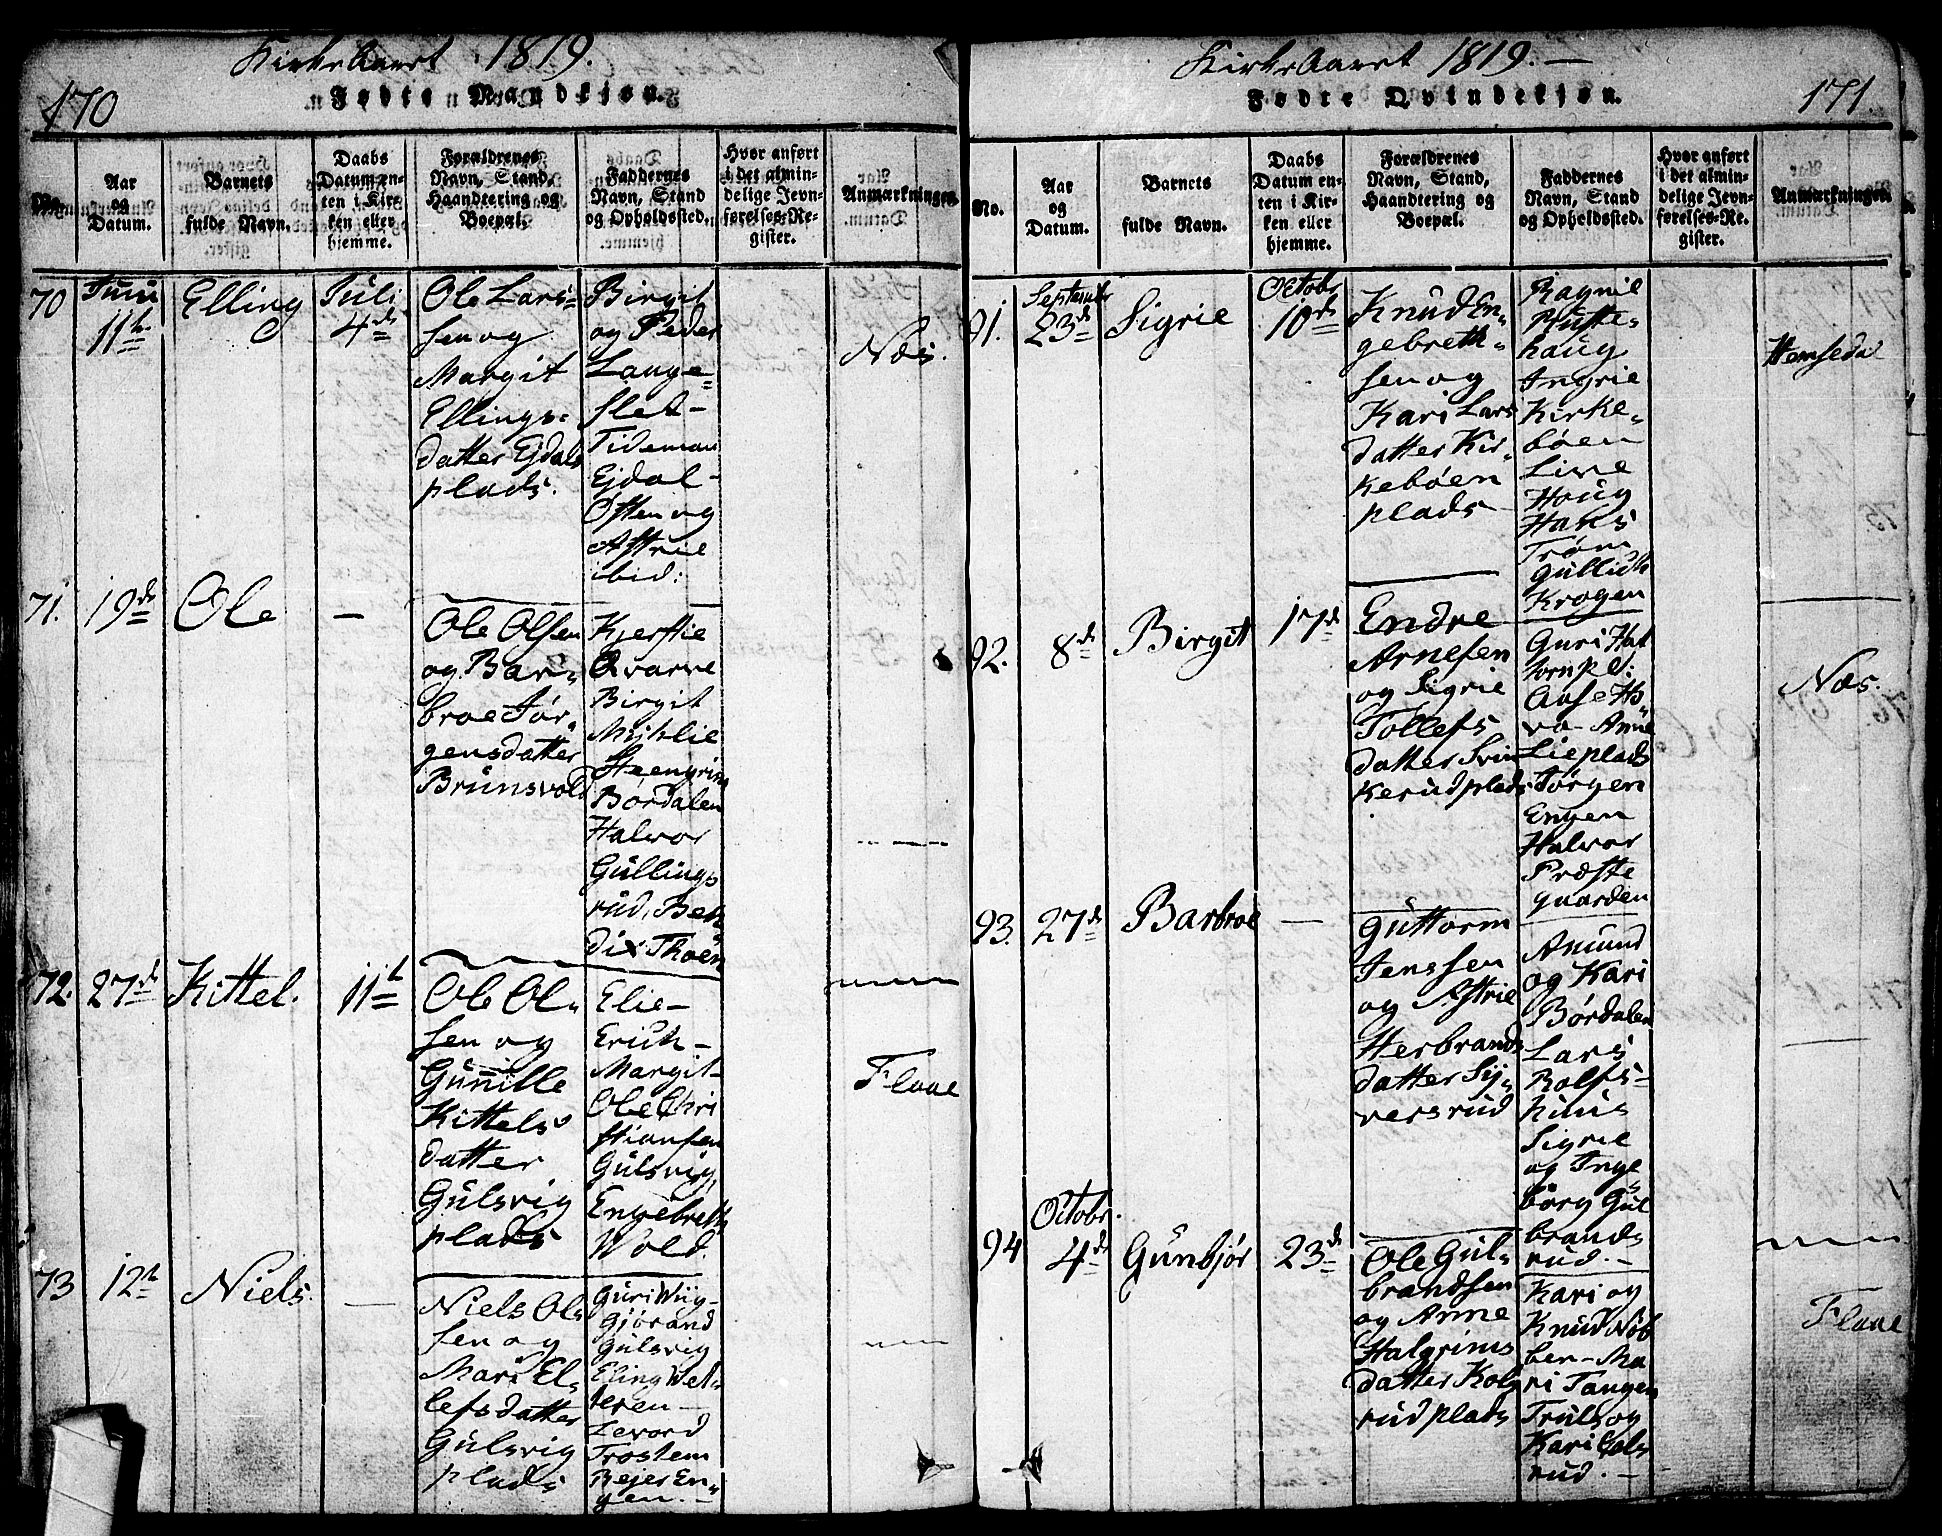 Kirke Aaret 1819.
170
Fødte Mandkjøn.
No.
Aar
og
Datum.
Barnets
fulde Navn.
Daabs
Datum en-
ten i Kir-
ken eller
hjemme.
Forældrenes
Navn, Stand,
Haandtering og
Boepæl.
Faddernes
Navn, Stand
og Opholdssted.
Hvor anført
i det almin-
delige Jevn-
førelses-Re-
gister.
Anmærkninger.
70
Juni
11te
Elling
Juli
4de
Ole Lars=
sen og
Margit
Ellings=
datter Ejdals
plads.
Birgit
og Peder
Lange=
slet-
Tideman
Ejdal-
Østen og
Astrie
ibid:
Næs.
71.
19de
Ole
—
Ole Olsen
og Bar=
broe Jør=
gensdatter
Brunsvold
Kjerstie
Qvarve
Birgit
Myhlie
Steengrim
Børdalen
Halvor
Gullings
rud, Ben
dix Thoen
72.
27de
Kittel.
11te
Ole Ol=
sen og
Gunille
Kittels=
datter
Gulsvig
plads
Elie-
Erich-
Margit-
Ole Chri
stiansen
Gulsvig,
Engebreth
Wold.
Flaae
73
12te
Niels.
—
Niels Ol=
sen og
Mari El=
lefsdatter
Gulsvig
plads
Guri Wiig-
Gjørand
Gulsvig
Eling Wel=
teren-
Levord
Trostem
Bejer En=
gen.-
Kirke Aaret 1819.—
171.
Fødte Qvindekjøn.
No.
Aar
og
Datum.
Barnets
fulde Navn.
Daabs
Datum en-
ten i Kir-
ken eller
hjemme.
Forældrenes
Navn, Stand,
Haandtering og
Boepæl.
Faddernes
Navn, Stand
og Opholdssted.
Hvor anført
i det almin-
delige Jevn-
førelses-Re-
gister.
Anmærkninger.
91.
Septembr
23de
Sigrie
Octobr
10de
Knud En=
gebreth=
sen og
Kari Lars
datter Kir=
kebøen
plads
Ragnil
Ruste=
haug
Ingrie
Kirke=
bøen
Live
Haug
Hans
Trøm
Gullich
Krogen
Hemsedal
92.
8de
Birgit
17de
Endre
Arnesen
og Sigrie
Tollefs
datter Svin
kerudplads
Guri Hat
tornpl:
Aase Ho=
va- Anne
Lieplads
Jørgen
Engen
Halvor
Præste
gaarden
Næs.
93.
27de
Barbroe
—
Guttorm
Jenssen
og Astrie
Herbrands
datter Sy=
versrud
Amund
og Kari
Børdalen
Lars
Rolfs-
huus
Sigrie
og Inge=
børg Gul
brands
rud.-
94
Octobr.
4de
Gunbjør
23de
Ole Gul=
brandsen
og Anne
Halgrims
datter Kols
rudplads
Kari og
Knud Nøb
ben- Ma
ri Tangen
Truls og
Kari Cols
rud.-
Flaae